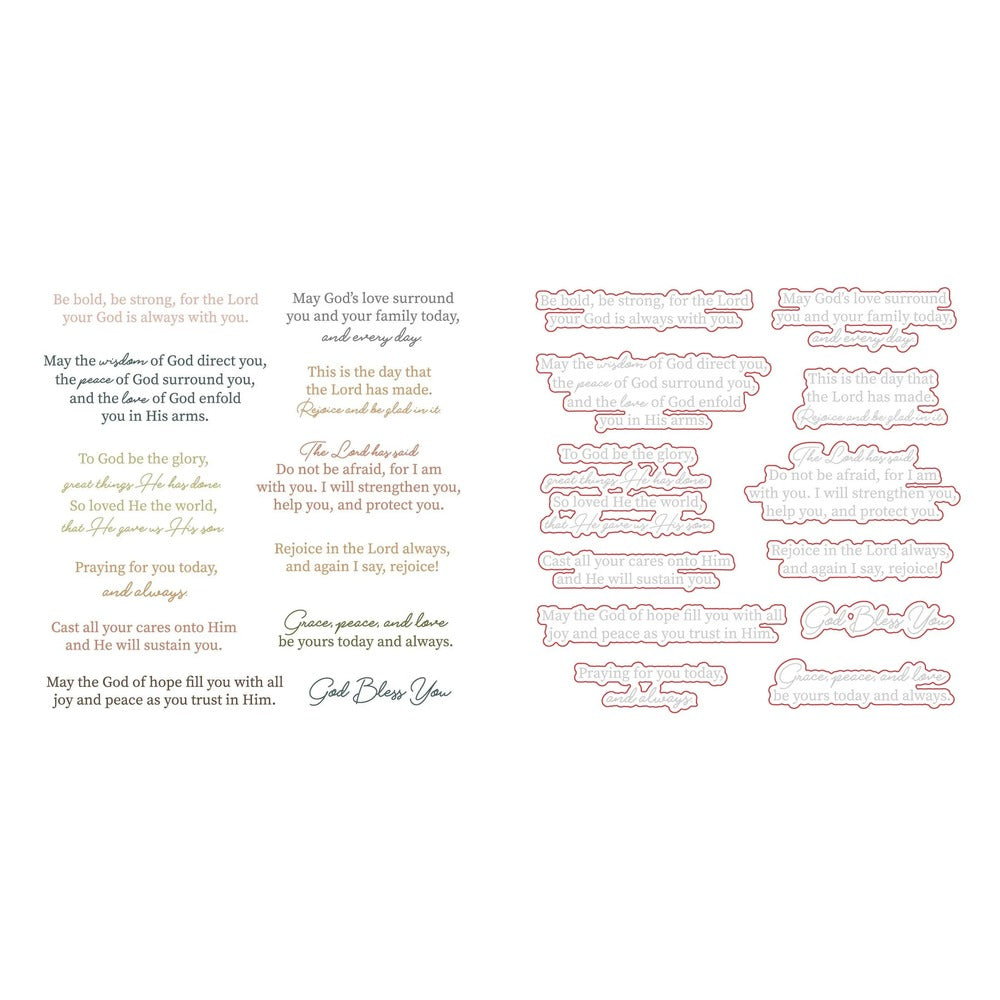 Be bold, be strong, for the Lord
your God is always with you.
May the wisdom of God direct you,
the peace of God surround you,
and the love of God enfold
you in His arms.
To God be the glory,
great things He has done.
So loved He the world,
that He gave us His son.
Praying for you today,
and always.
Cast all your cares onto Him
and He will sustain you.
May the God of hope fill you with all
joy and peace as you trust in Him.
May God's love surround
you and your family today,
and every day.
This is the day that
the Lord has made.
Rejoice and be glad in it.
The Lord has said
Do not be afraid, for I am
with you. I will strengthen you,
help you, and protect you.
Rejoice in the Lord always,
and again I say, rejoice!
Grace, peace, and love
be yours today and always.
God Bless You
Be bold, be strong, for the Lord
your God is always with you.
May the wisdom of God direct you,
the peace of God surround you,
and the love of God enfold
you in His arms.
To God be the glory,
great things He has done.
So loved He the world,
that He gave us His son.
Cast all your cares onto Him
and He will sustain you.
May the God of hope fill you with all
joy and peace as you trust in Him.
Praying for you today,
and always.
May God's love surround
you and your family today,
and every day.
This is the day that
the Lord has made.
Rejoice and be glad in it.
The Lord has said
Do not be afraid, for I am
with you. I will strengthen you,
help you, and protect you.
Rejoice in the Lord always,
and again I say, rejoice!
God Bless You
Grace, peace, and love
be yours today and always.